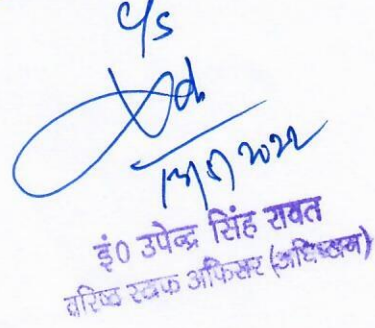 c/s
इं० उपेन्द्र सिंह रावत
वरिष्ठ स्टाफ अफिसर (अधिष्ठान)